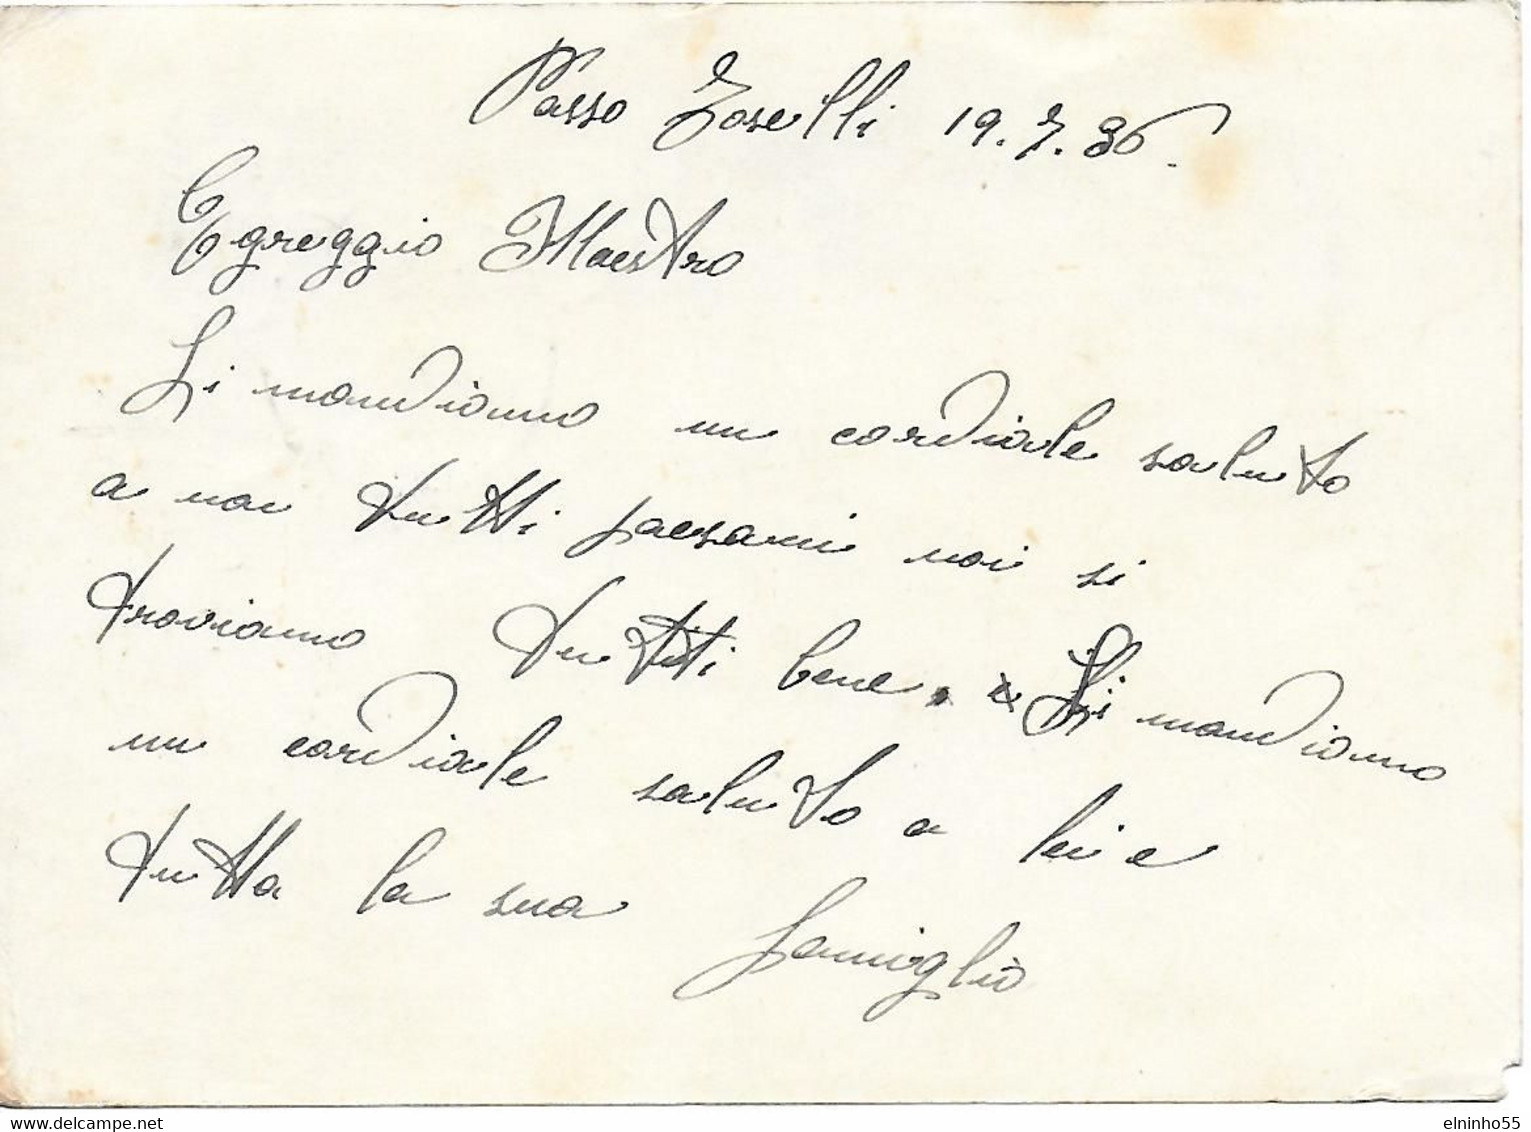 Passo Toselli 19.7.36.
Egreggio Maestro
Li mandiamo un cordiale saluto
a noi tutti paesani noi si
troviamo tutti bene, Li mandiamo
un cordiale saluto a lei e
tutta la sua famiglia
delcampe.net
elninho55